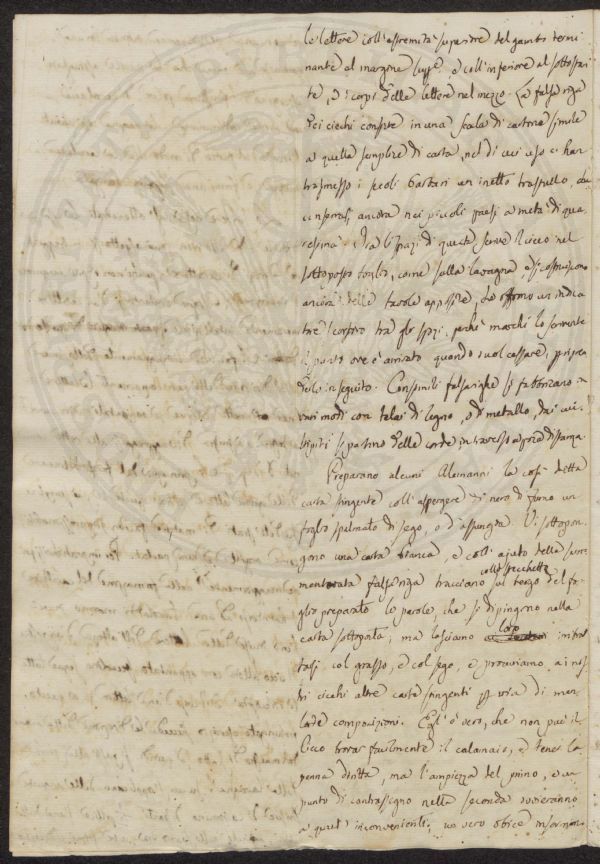 le lettere coll'estremità superiore del gambo termi
nante al margine supe. e coll'inferiore al sottostan
te, e i corpi delle lettere nel mezzo. La falsariga
dei ciechi consiste in una scala di cartone simile
a quella semplice di carta, nel di cui uso ci han
trasmesso i secoli barbari un inetto trastullo, che
conservasi ancora nei piccoli paesi a metà di qua
resima. Tra li spazi di questa scrive il cieco nel
sottoposto foglio, come sulla lavagna, e si costruiscono
ancora delle tavole apposite, che offrono un indica
tore scorsoio tra gli spazi, perché marchi lo scrivente
il punto ove è arrivato quando vuol cessare, per ripren
derlo in seguito. Consimili falsarighe si fabbricano in
vari modi con telai di legno, o di metallo, dai cui
si partono delle corde in traverso a poca distanza.
Preparano alcuni Alemanni la così detta
carta tingente coll'aspergere di nero di fumo un
foglio spalmato di sego, o d'assungia. Vi sottopon
gono una carta bianca, e coll'ajuto della sum
mentovata falsariga tracciano collo stecchetto sul tergo del fo
glio preparato le parole, che si dipingono nella
carta sottoposta; ma lasciano loro imbrat
tasi col grasso, e col sego, e procuriamo ai nos
tri ciechi altre carte tingenti per via di men
lorde composizioni. Egli è vero, che non può il
cieco trovar facilmente il calamaio, e tener la
penna diritta, ma l'ampiezza del primo, e un
punto di contrassegno nella seconda ovvieranno
a questi inconvenienti; un vero obice insormon